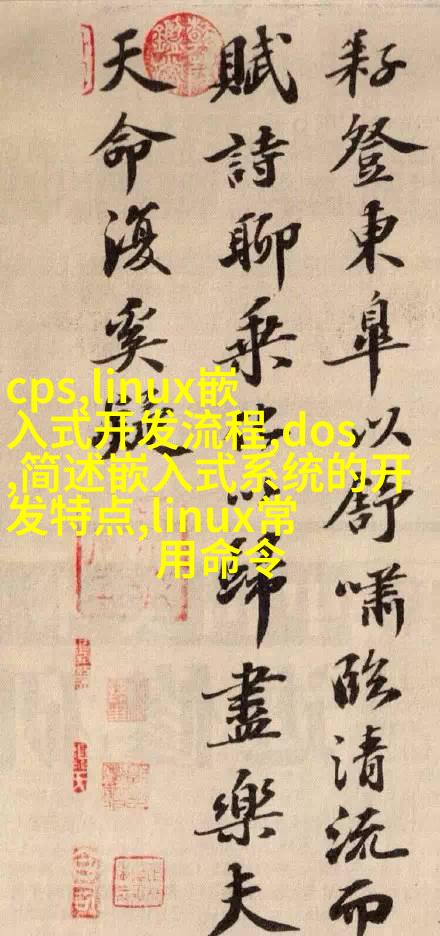 耔登東皐以舒嘯臨清流而
賦詩聊乗化以歸盡樂夫
天命復奚疑
cps,linux嵌
入式开发流程,dos
,简述嵌入式系统的开
发特点,linux常
用命令